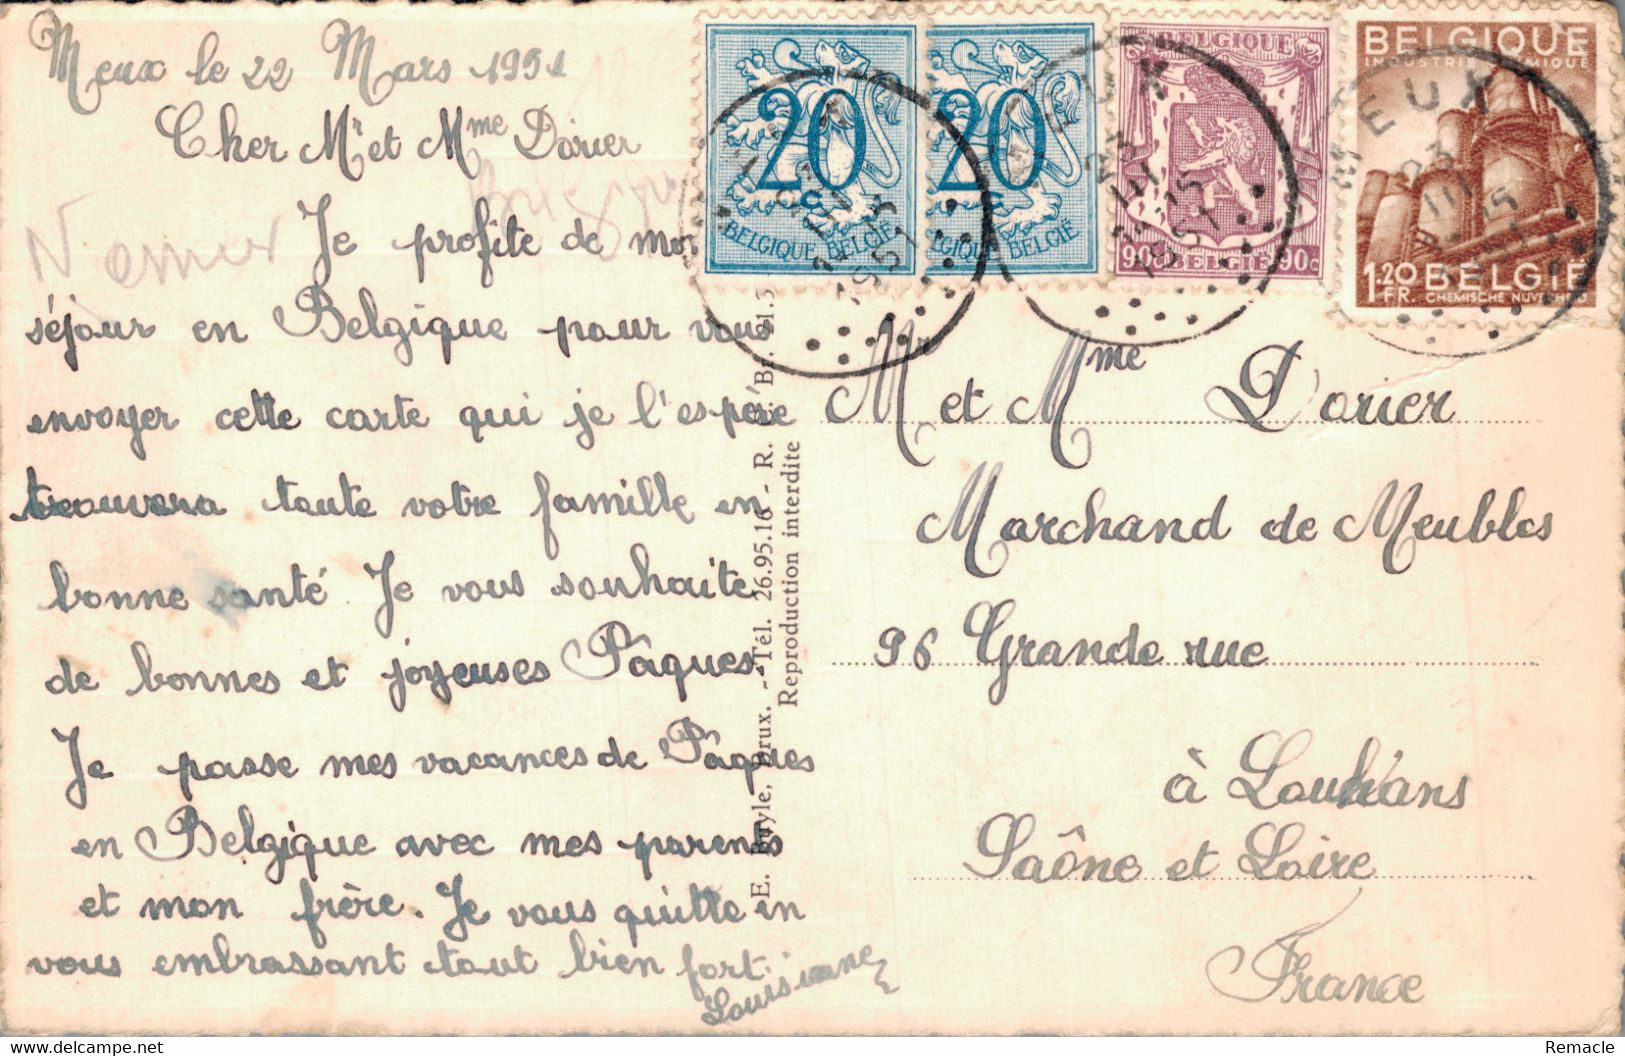 Meux le 22 Mars 1951
Cher Mr et Mme Dorier
Je profite de mon
séjour en Belgique pour vous
envoyer cette carte qui je l'espère
trouvera toute votre famille en
bonne santé. Je vous souhaite
de bonnes et joyeuses Pâques
Je passe mes vacances de Pâques
en Belgique avec mes parents
et mon frère. Je vous quitte en
vous embrassant tout bien fort.
Louisiane
Namur
Belgique
E. Buyle, Brux. - Tél. 26.95.16 - R.
Reproduction interdite
20
BELGIQUE BELGIË
20
BELGIQUE BELGIË
BELGIQUE
90c BELGIË 90c
BELGIQUE
INDUSTRIE CHIMIQUE
1.20 FR. BELGIË
CHEMISCHE NIJVERHEID
MEUX
23 III 15
1951
Mr et Mme Dorier
Marchand de Meubles
96 Grande rue
à Louhans
Saône et Loire
France
http://www.delcampe.net
Remacle